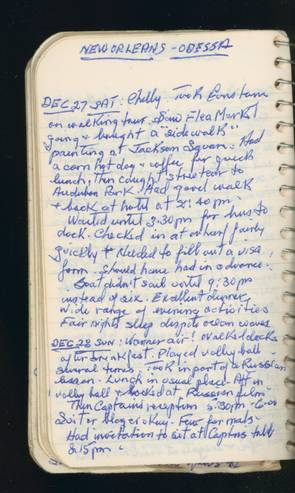 NEW ORLEANS - ODESSA
DEC 27 SAT: Chilly. Took
on walking tour. Saw Flea Market
going & bought a "sidewalk"
painting at Jackson Square. Had
a corn hot dog & coffee for quick
lunch, then caught streetcar to
Audubon Park. Had good walk
& back at hotel at 2:40 pm.
Waited until 3:30 pm for bus to
dock. Checked in at wharf fairly
quickly & needed to fill out a visa
form. Should have had in advance.
Boat didn't sail until 9:30 pm
instead of six. Excellent dinner,
wide range of evening activities
Fair nights sleep despite ocean waves
DEC 28 SUN: Warmer air! Walked decks
after breakfast. Played volley ball
several times, took in part of a Russian
lesson. Lunch in usual place. Aft. in
volley ball & looked at Russian film
Then Captains reception 5:30pm
Suit or blazer okay. Few formals.
Had invitation to sit at Captns table
8:15pm.